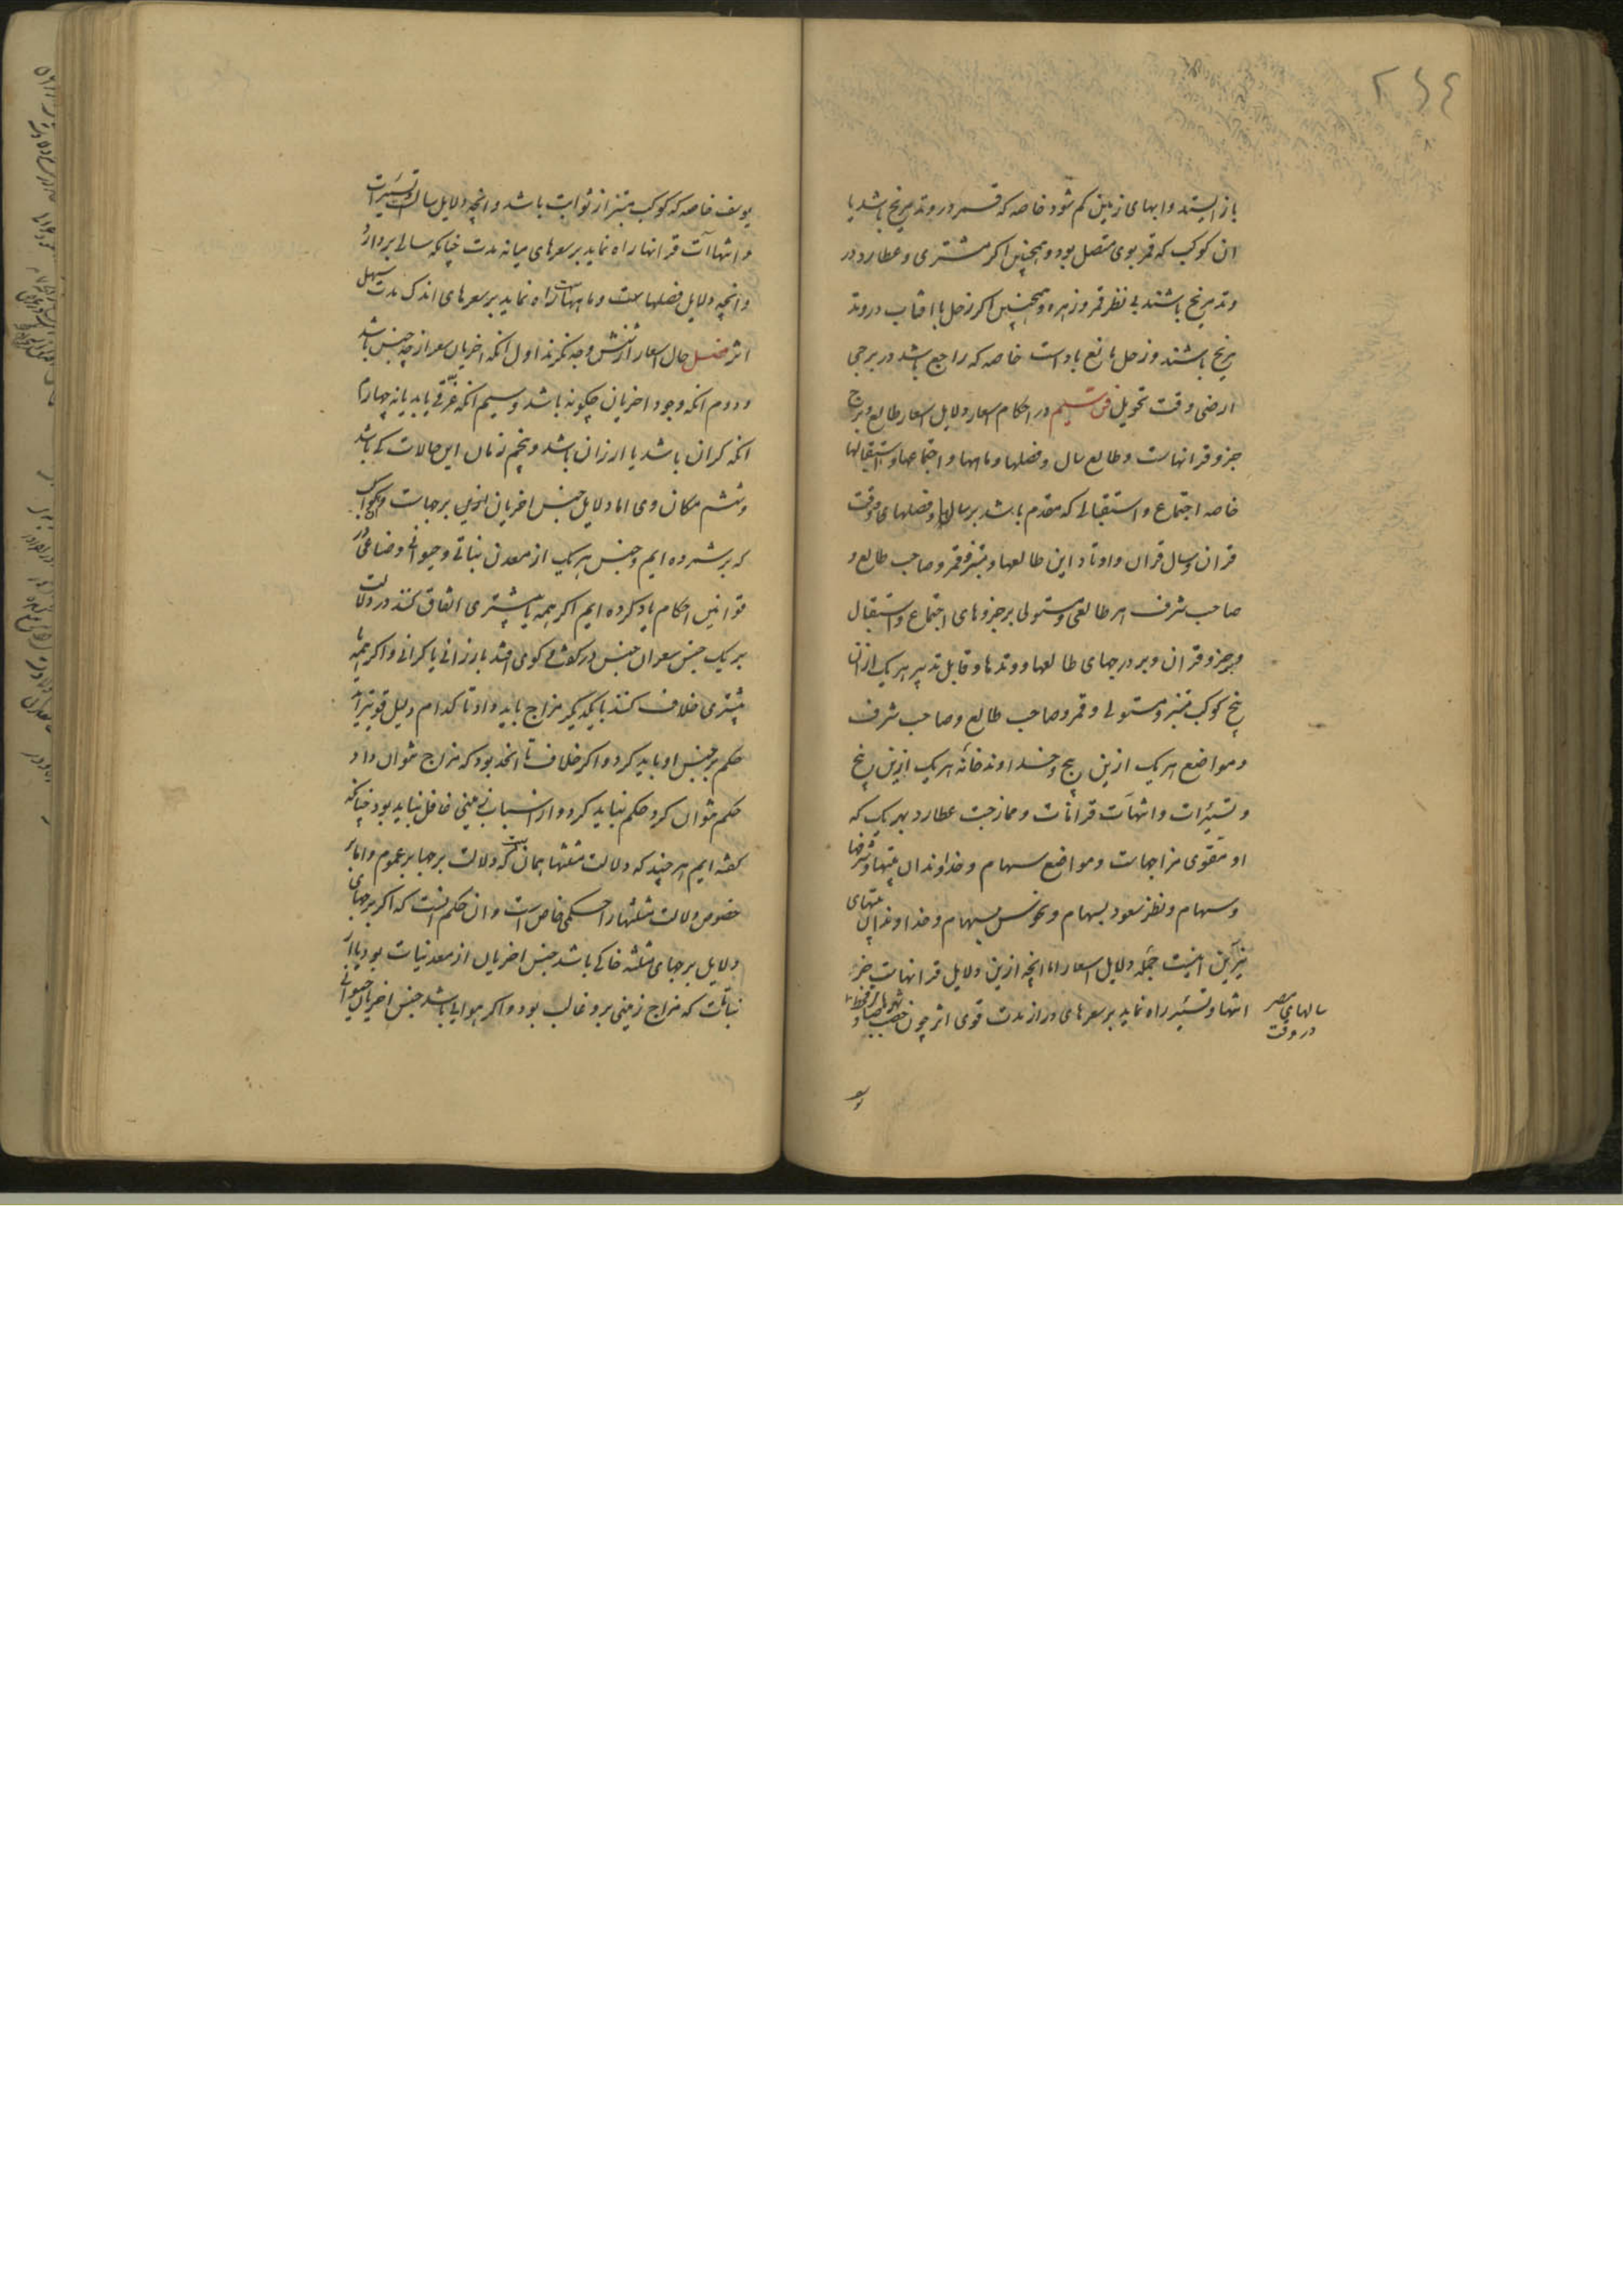 ۲۶۴
باز ایستد وابهای زمین کم شود خاصه که قمر در وتد مریخ باشد یا
ان کوکب که قمر بوی متصل بود وهمچنین اکر مشتری وعطارد در
وتد مریخ باشند بی نظر قمر وزهره وهمچنین اکر زحل با افتاب در وتد
مریخ باشند وزحل مانع باد است خاصه که راجع باشد در برجی
ارضی وقت تحویل فن سیم در احکام اسعار دلایل اسعار طالع وبرج
جزو قرانهاست وطالع سال وفصلها وماهها واجتماعها واستقبالها
خاصه اجتماع واستقبالی که مقدم باشد بر سال وفصلهای وقت
قران وسال قران واوتاد این طالعها ومبتز وقمر وصاحب طالع و
صاحب شرف هر طالعی ومستولی بر جزوهای اجتماع واستقبال
وبر جزو قران وبر درجهای طالعها ووتدها وقابل تدبیر هر یک از ان
پنج کوکب مبتز ومستولی وقمر وصاحب طالع وصاحب شرف
ومواضع هر یک ازین پنج وخداوند خانه هر یک ازین پنج
وتسییرات وانتهآت قرانات وممازجت عطارد بهر یک که
او مقوی مزاجهاست ومواضع سهام وخداوندان بیتها وشرفها
وسهام ونظر سعود بسهام ونحوس بسهام وخداوندان بیتهای
نیّرین اینست جمله دلایل اسعار اما انچه ازین دلایل قرانهاست جز
انتها وتسییر راه نماید بر سعرهای دراز مدت قوی اثر چون خصب
سالهای مصر
در وقت
یوسف خاصه که کوکب مبتز از ثوابت باشد وانچه دلایل سال وتسییرات
وانتهاآت قرانها راه نماید بر سعرهای میانه مدت چنانکه سالی بردارد
وانچه دلایل فصلهاست وماههاست راه نماید بر سعرهای اندک مدت سهل
اثر فصل حال اسعار از شش وجه نکرند اول انکه اخریان سعر از چه جنس باشد
ودوم انکه وجود اخریان چکونه باشد وسیم انکه عزتی یابد یا نه چهارم
انکه کران باشد یا ارزان باشد وپنجم زمان این حالات کی باشد
وششم مکان وی اما دلایل جنس اخریان ازین برجهاست وکواکب
که بر شمرده ایم وجنس هر یک از معدنی نباتی وحیوانی وصناعی در
قوانین احکام یاد کرده ایم اکر همه یا بیشتری اتفاق کنند در دلالت
بر یک جنس سعر ان جنس در کفت وکوی افتد بارزانی یا کرانی واکر همه یا
بیشتری خلاف کنند با یکدیکر مزاج باید داد تا کدام دلیل قویتر اید
حکم بر جنس او باید کرد واکر خلاف تا انحد بود که مزاج نتوان داد
حکم نتوان کرد حکم نباید کرد واز اسباب زمینی غافل نباید بود چنانکه
کفته ایم هر چند که دلالت مثلثها همان است که دلالت برجها بر عموم واما بر
خصوص دلالت مثلثها را حکمی خاص است وان حکم انست که اکر برجهای
دلایل برجهای مثلثه خاکی باشد جنس اخریان از معدنیات بود یا از
نباتات که مزاج زمینی برو غالب بود واکر هوایی باشد جنس اخریان حیوانی